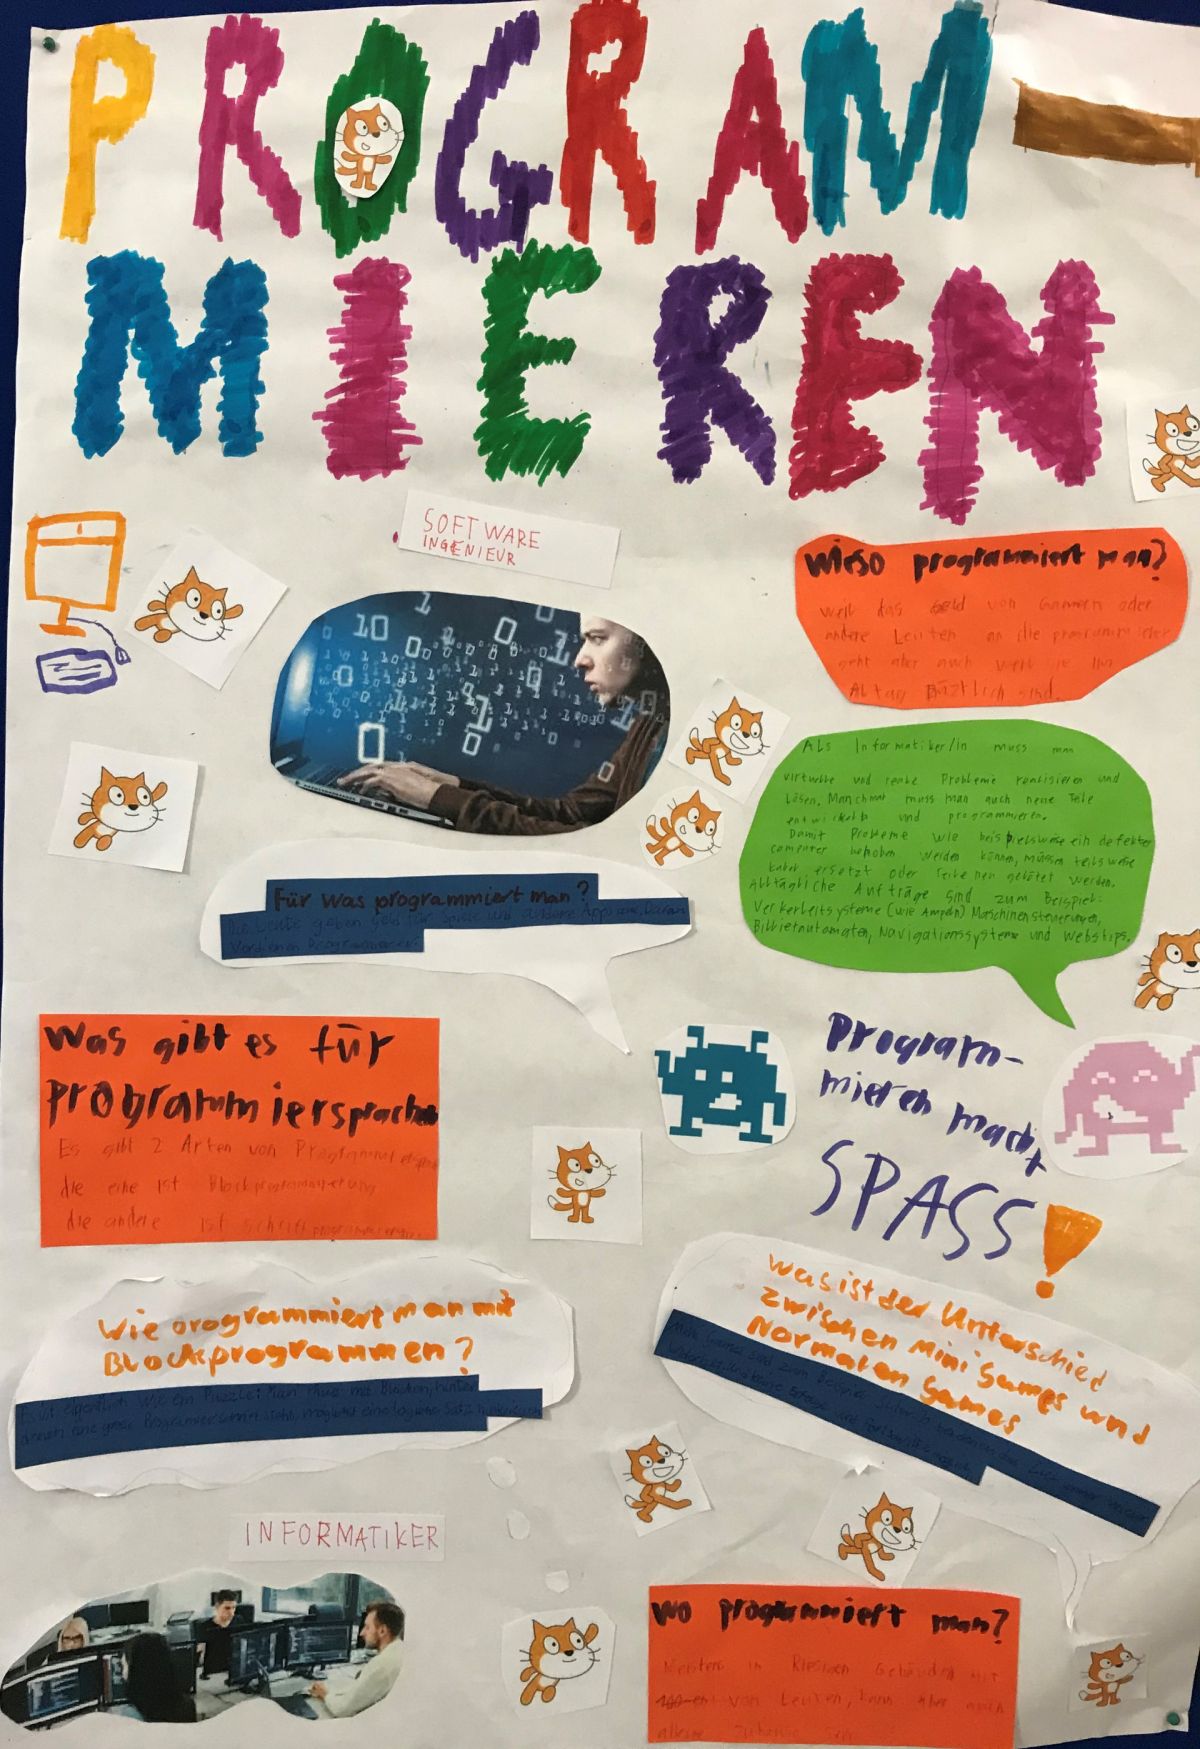 PROGRAM-
MIEREN
SOFTWARE
INGENIEUR
Wieso programmiert man?
weil das Geld von Gamern oder
andere Leuten an die programmierer
geht aber auch weil sie im
Alltag nützlich sind.
Als Informatiker/in muss man
virtuelle und reale Probleme und
Lösen. Manchmal muss man auch neue Teile
entwickeln und programmieren.
Damit Probleme wie beispielsweise ein defekter
behoben werden können, müssen teilsweise
kabel ersetzt oder gelötet werden.
Alltägliche Aufträge sind zum Beispiel:
(wie Ampeln) Maschinensteuerungen,
Billietautomaten, Navigationssysteme und Webshops.
Für was programmiert man?
Die Leute geben Geld für Spiele und andere Apps aus. Daran
Verdienen Programmierer.
Was gibt es für
programmiersprachen
Es gibt 2 Arten von
die eine ist Blockprogrammierung
die andere ist Schriftprogrammierung.
Program-
mieren macht
SPASS!
Wie programmiert man mit
Blockprogrammen?
Es ist eigentlich wie ein Puzzle: Man muss mit Blöcken, hinter
denen eine große Programmierschrift steht, möglichst eine logische Satz
Was ist der Unterschied
zwischen Mini Games und
Normalen Games
Mini Games sind zum Beispiel
INFORMATIKER
Wo programmiert man?
Meistens in Riesigen Gebäuden mit
100en von Leuten, kann aber auch
alleine Zuhause sein.